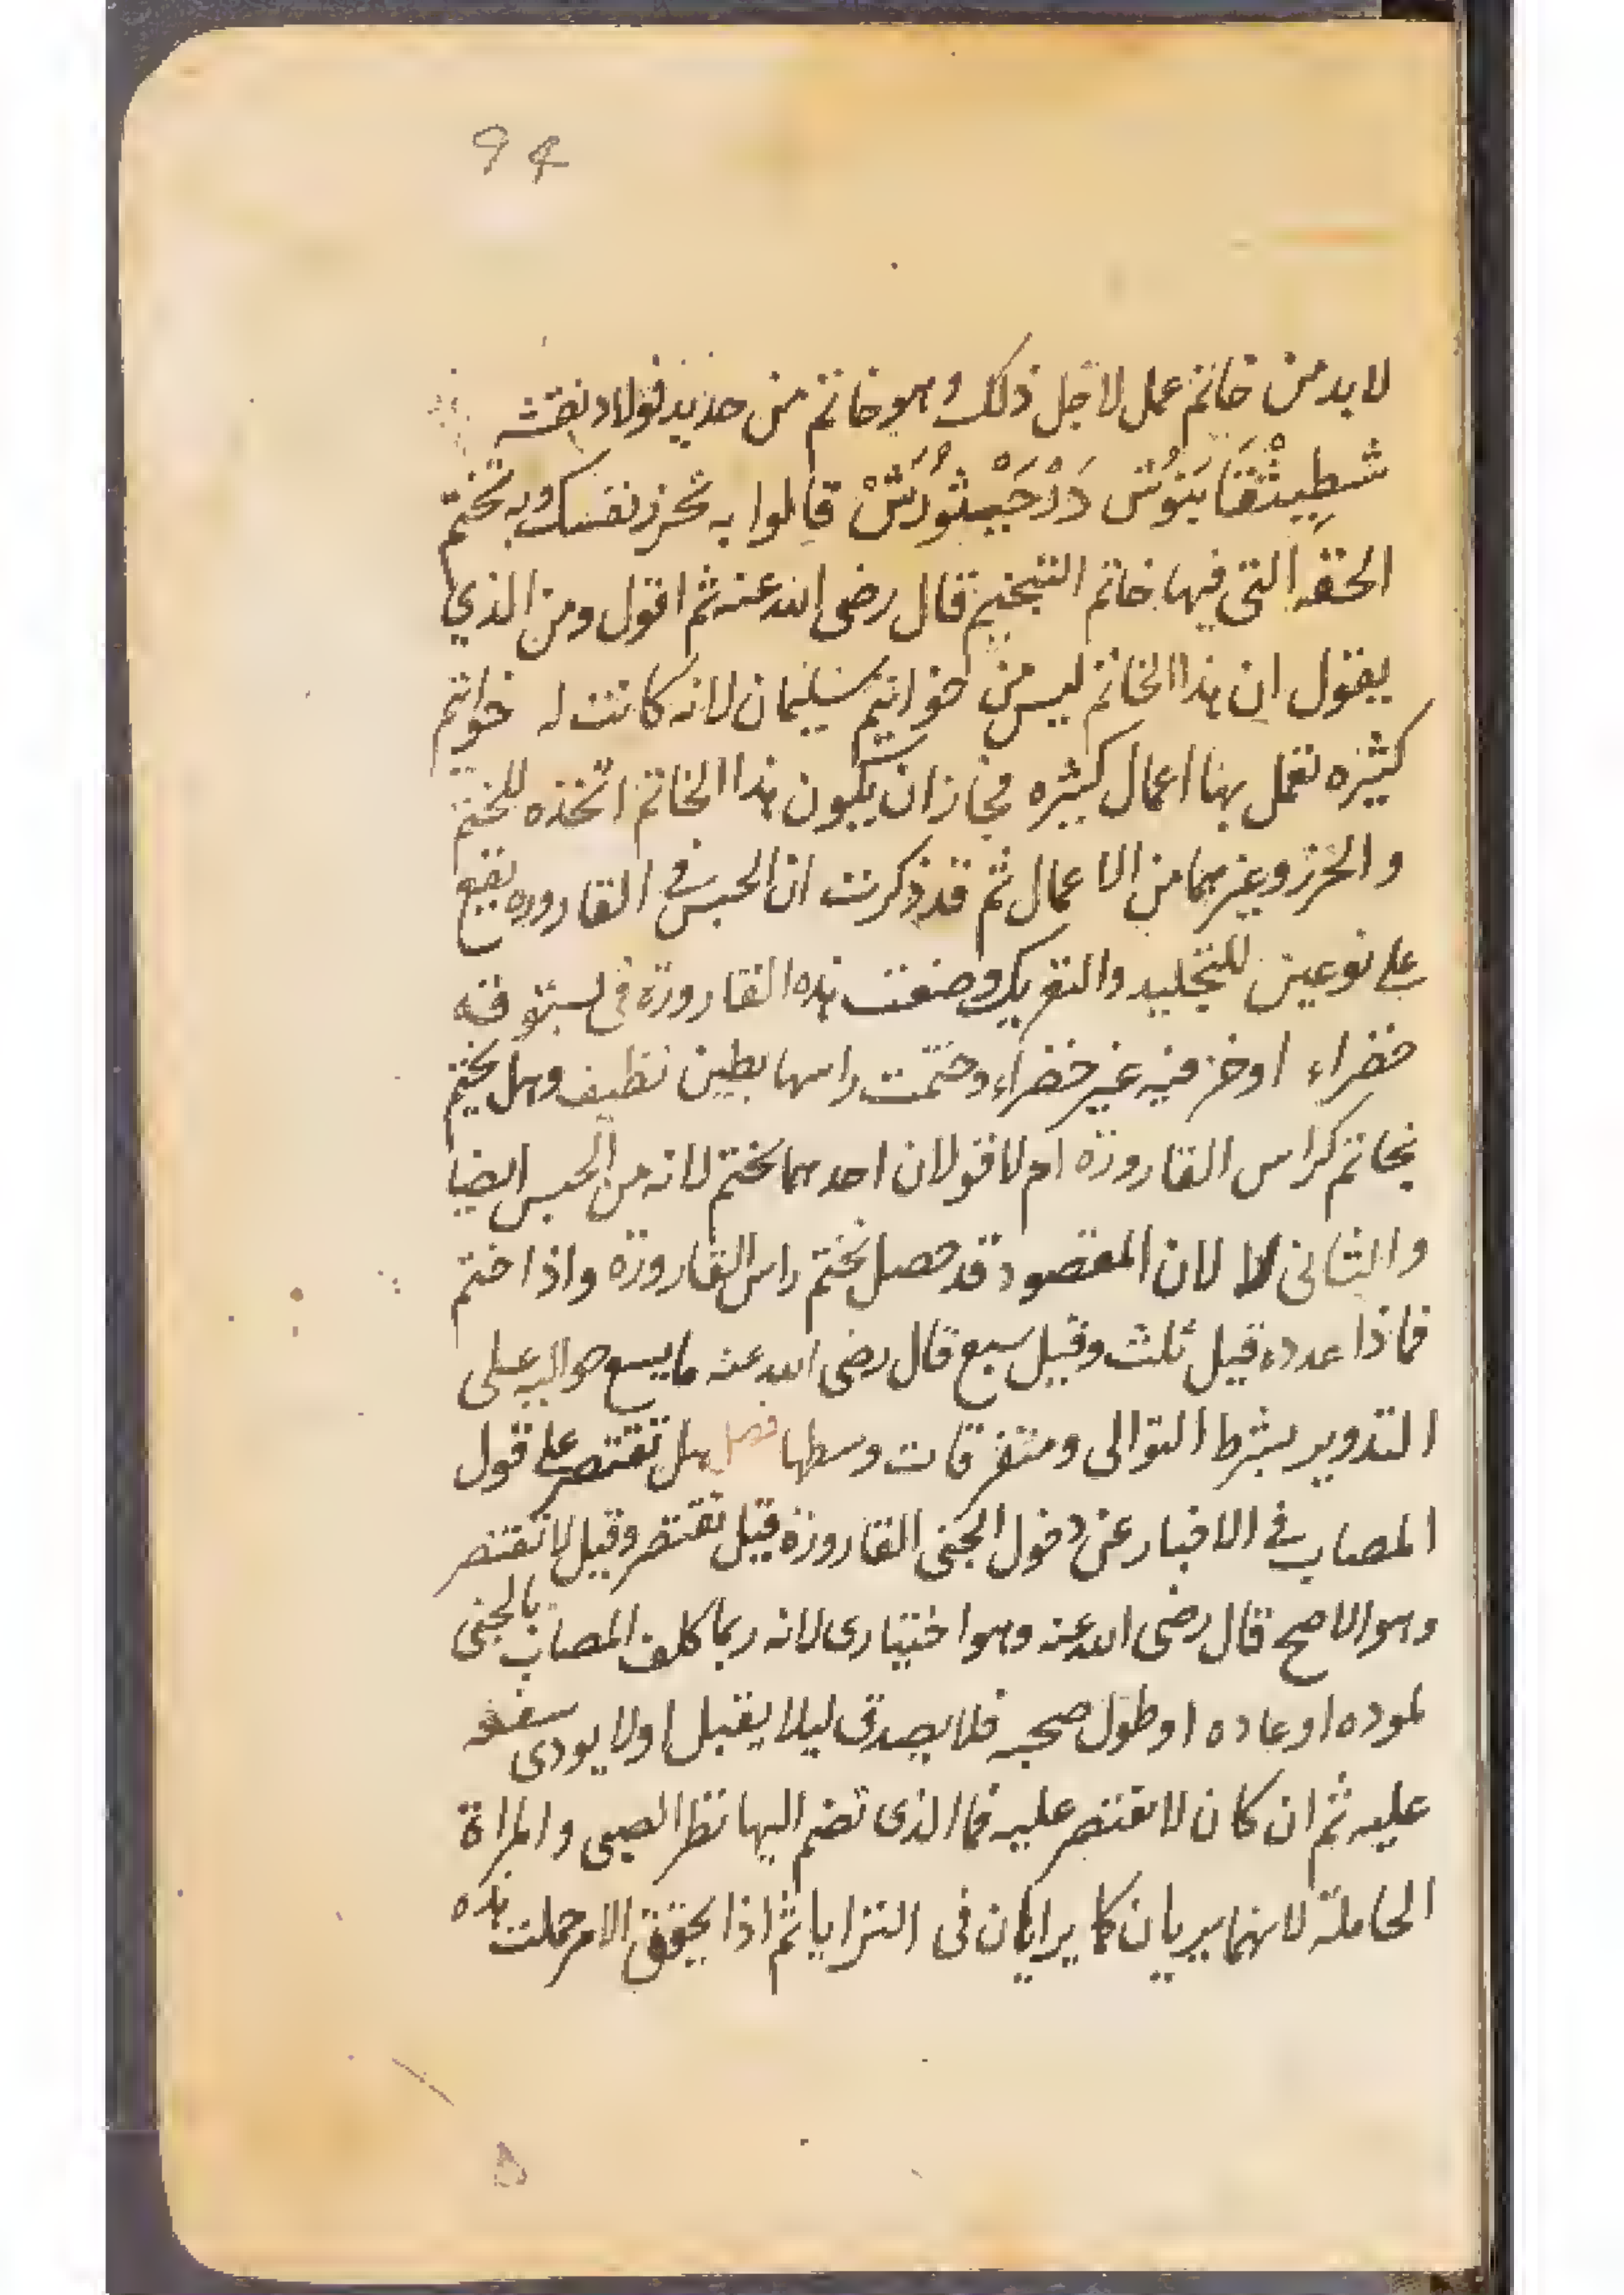 94
لا بد من خاتم عمل لاجل ذلك وهو خاتم من حديد فولاد نقشه
قالوا به تحرز نفسك وبه تختم
الحقه التى فيها خاتم التبخيم قال رضى الله عنه ثم اقول ومن الذي
يقول ان هذا الخاتم ليس من خواتيم سليمان لانه كانت له خواتم
كثيره تعمل بها اعمال كثيره فجاز ان يكون هذا الخاتم اتخذه للختم
والحرز وغيرهما من الاعمال ثم قد ذكرت ان الحبس فى القاروره يقع
على نوعين للتخليد والتفريك وضعت هذه القارورة فى بستوقه
خضراء او خزفيه غير خضراء وختمت راسها بطين نظيف وهل يختم
بخاتم كراس القارورة ام لا قولان احدهما يختم لانه من الحبس ايضا
والثانى لا لان المقصود قد حصل بختم راس القارورة واذا ختم
فماذا عدده قيل ثلث وقيل سبع قال رضى الله عنه ما يسع حواليه على
التدوير بشرط التوالى ومتفرقات وسطها فصل هل تقتصر على قول
المصاب فى الاخبار عن دخول الجنى القارورة قيل تقتصر وقيل لا تقتصر
وهو الاصح قال رضى الله عنه وهو اختيارى لانه ربما كلف المصاب بالجنى
لموده او عاده او طول صحبه فلا يصدق ليلا يقبل او لا يودى
عليه ثم ان كان لا تقتصر عليه فما الذى تضم اليها نظر الصبى والمراة
الحاملة لانهما يريان كما يرايان فى المرايا ثم اذا تحقق الامر حملت هذه